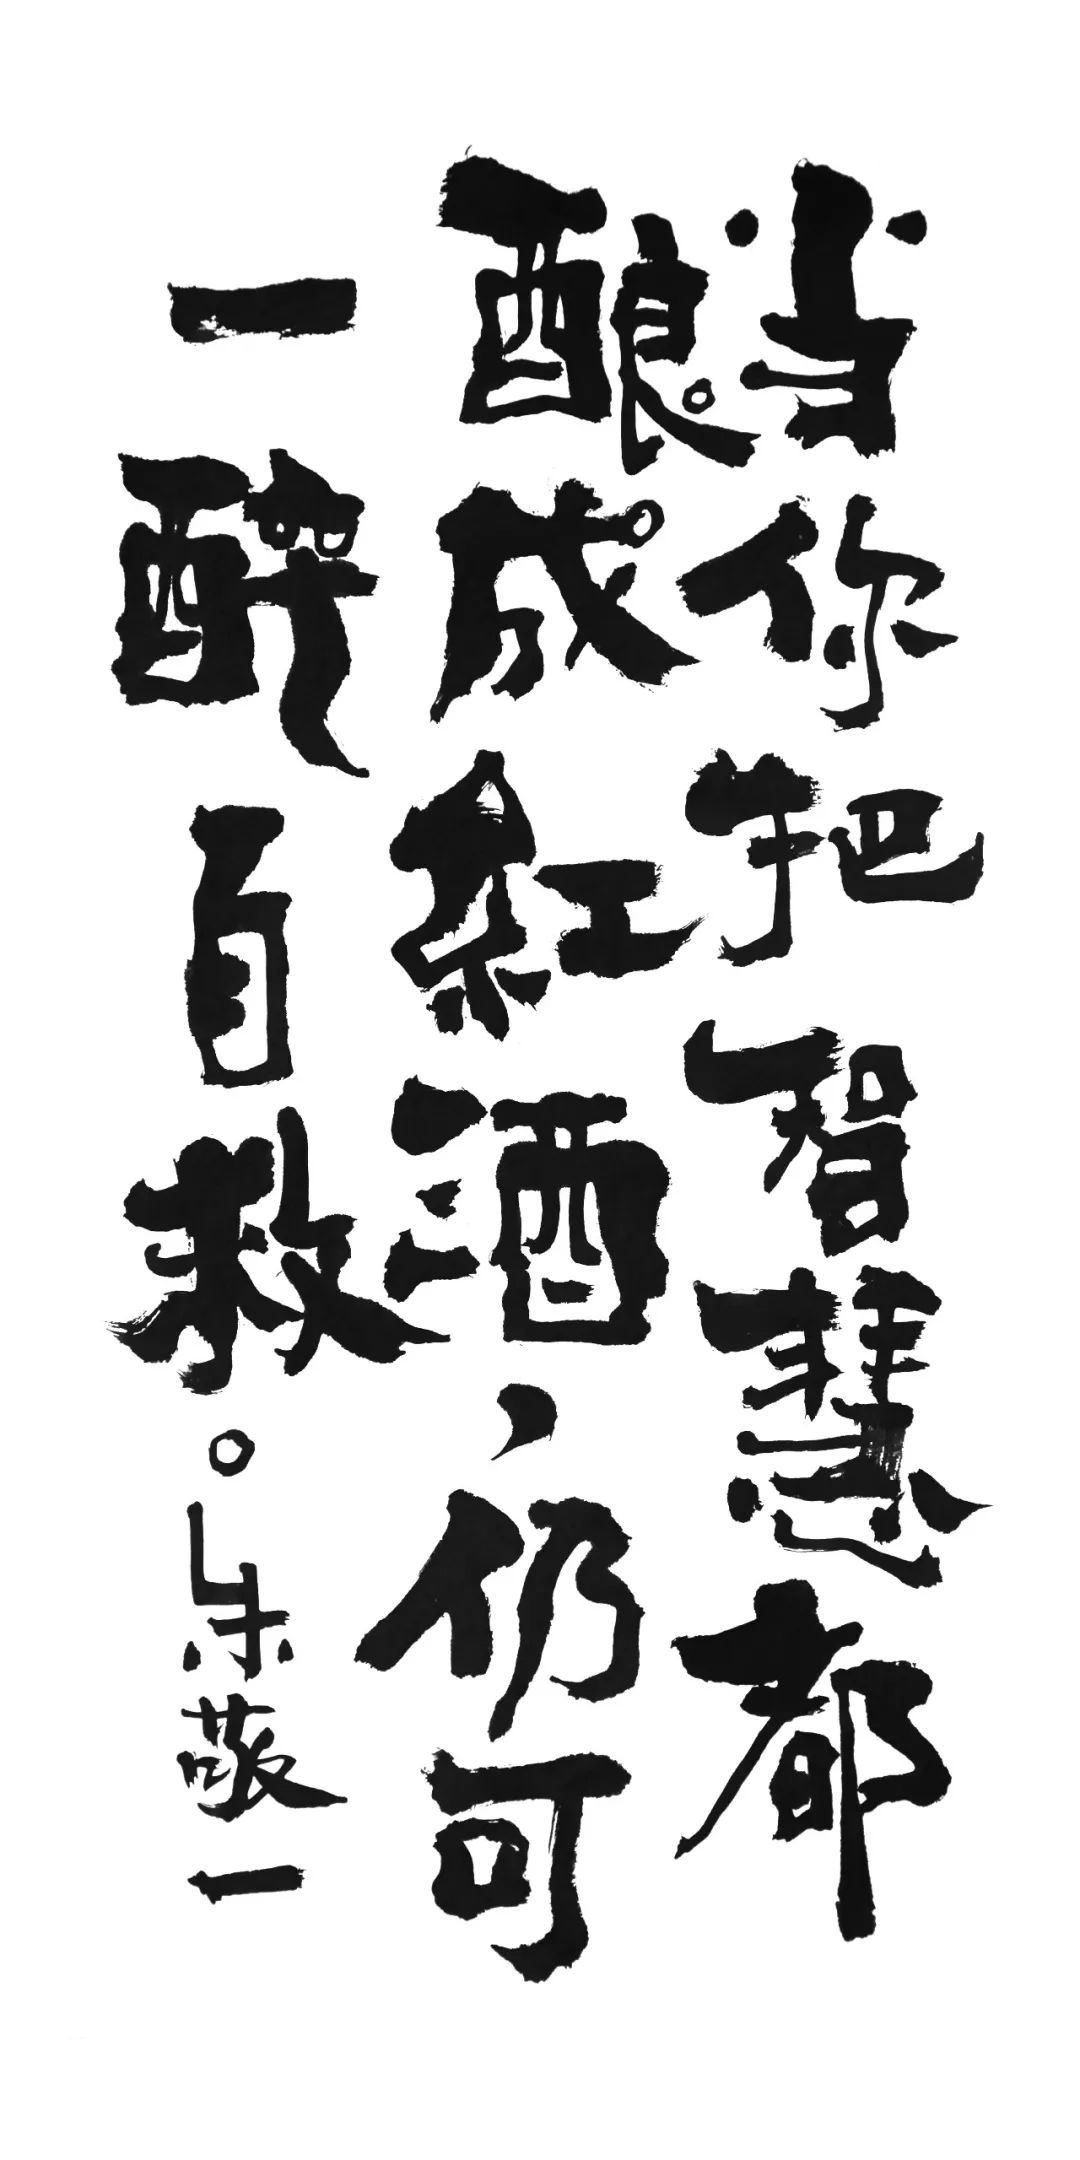 当你把智慧都
酿成红酒，仍可
一醉自救。朱敬一